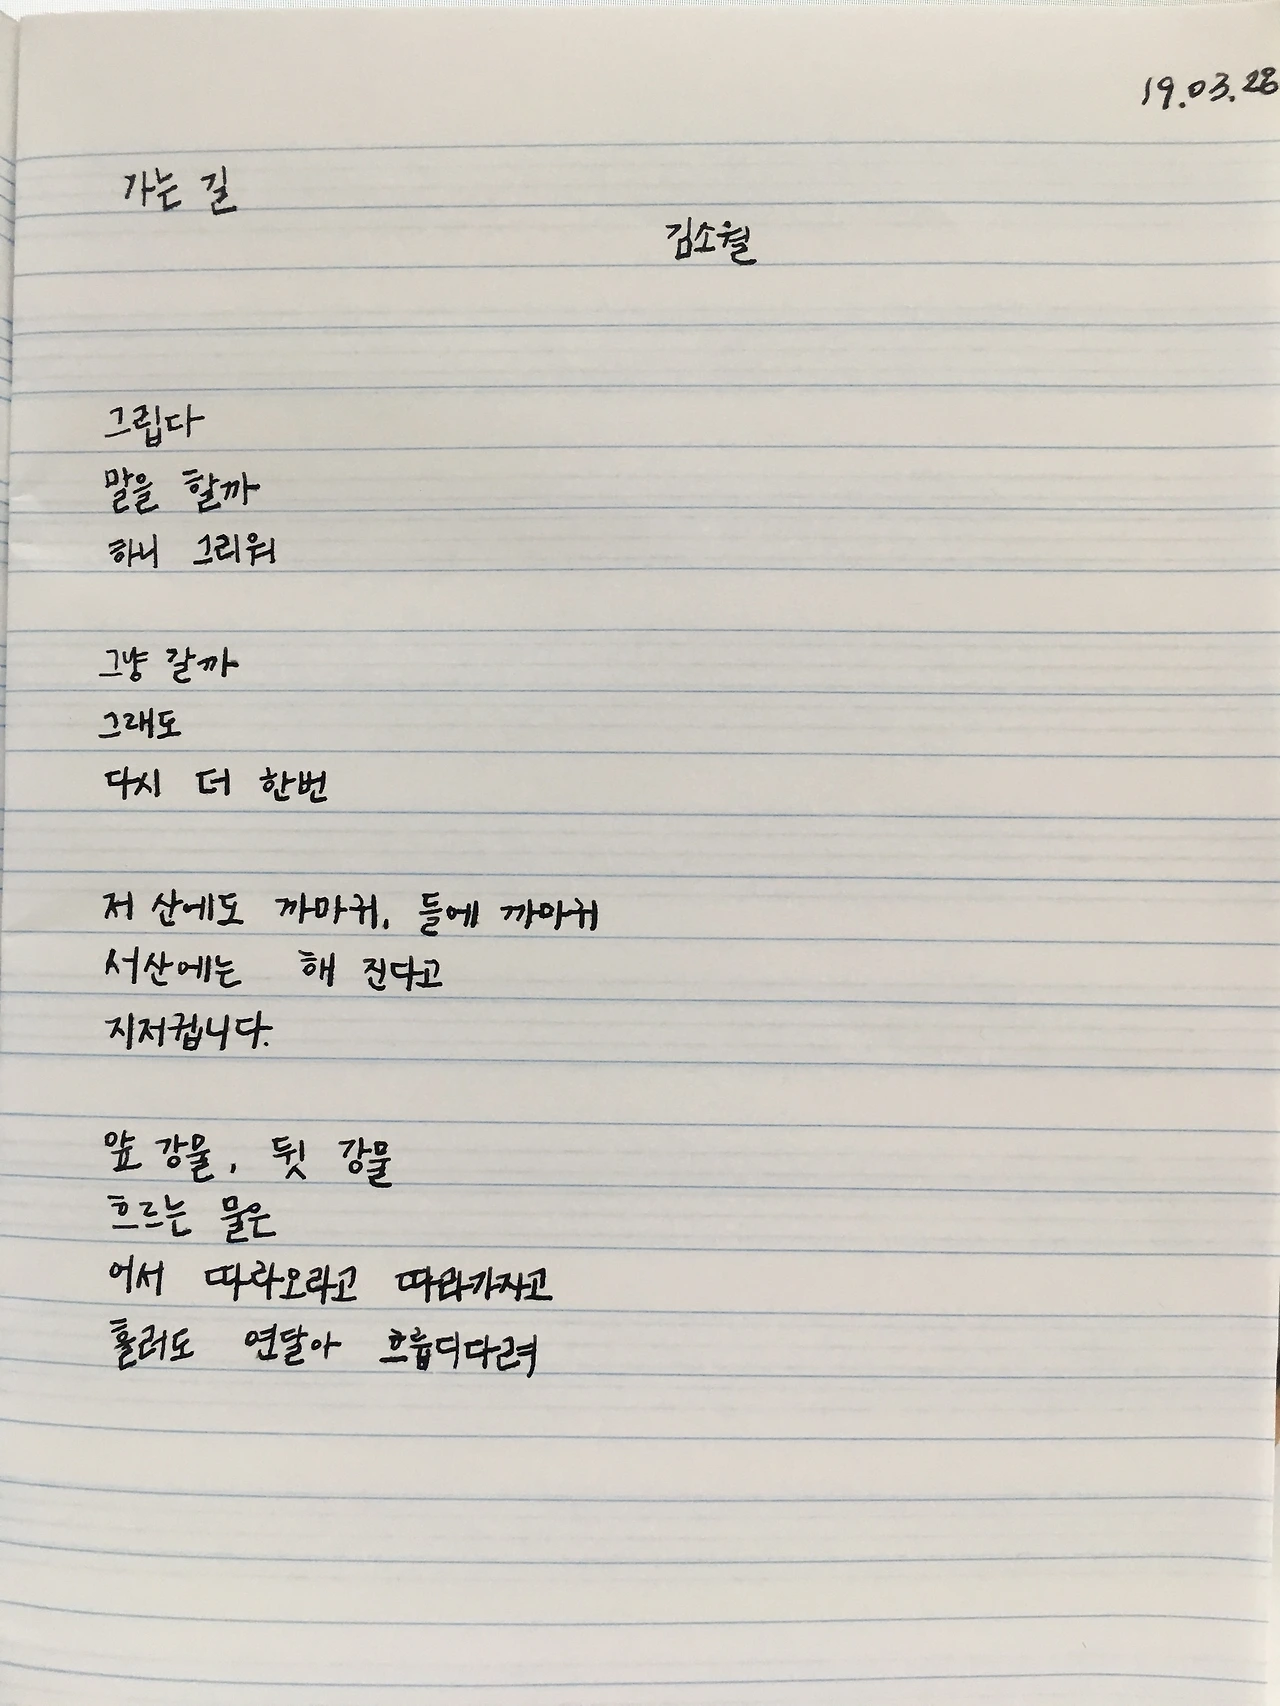 19.03.28
가는 길
김소월
그립다
말을 할까
하니 그리워
그냥 갈까
그래도
다시 더 한번
저 산에도 까마귀, 들에 까마귀
서산에는 해 진다고
지저귑니다.
앞 강물, 뒷 강물
흐르는 물은
어서 따라오라고 따라가자고
흘러도 연달아 흐릅디다려